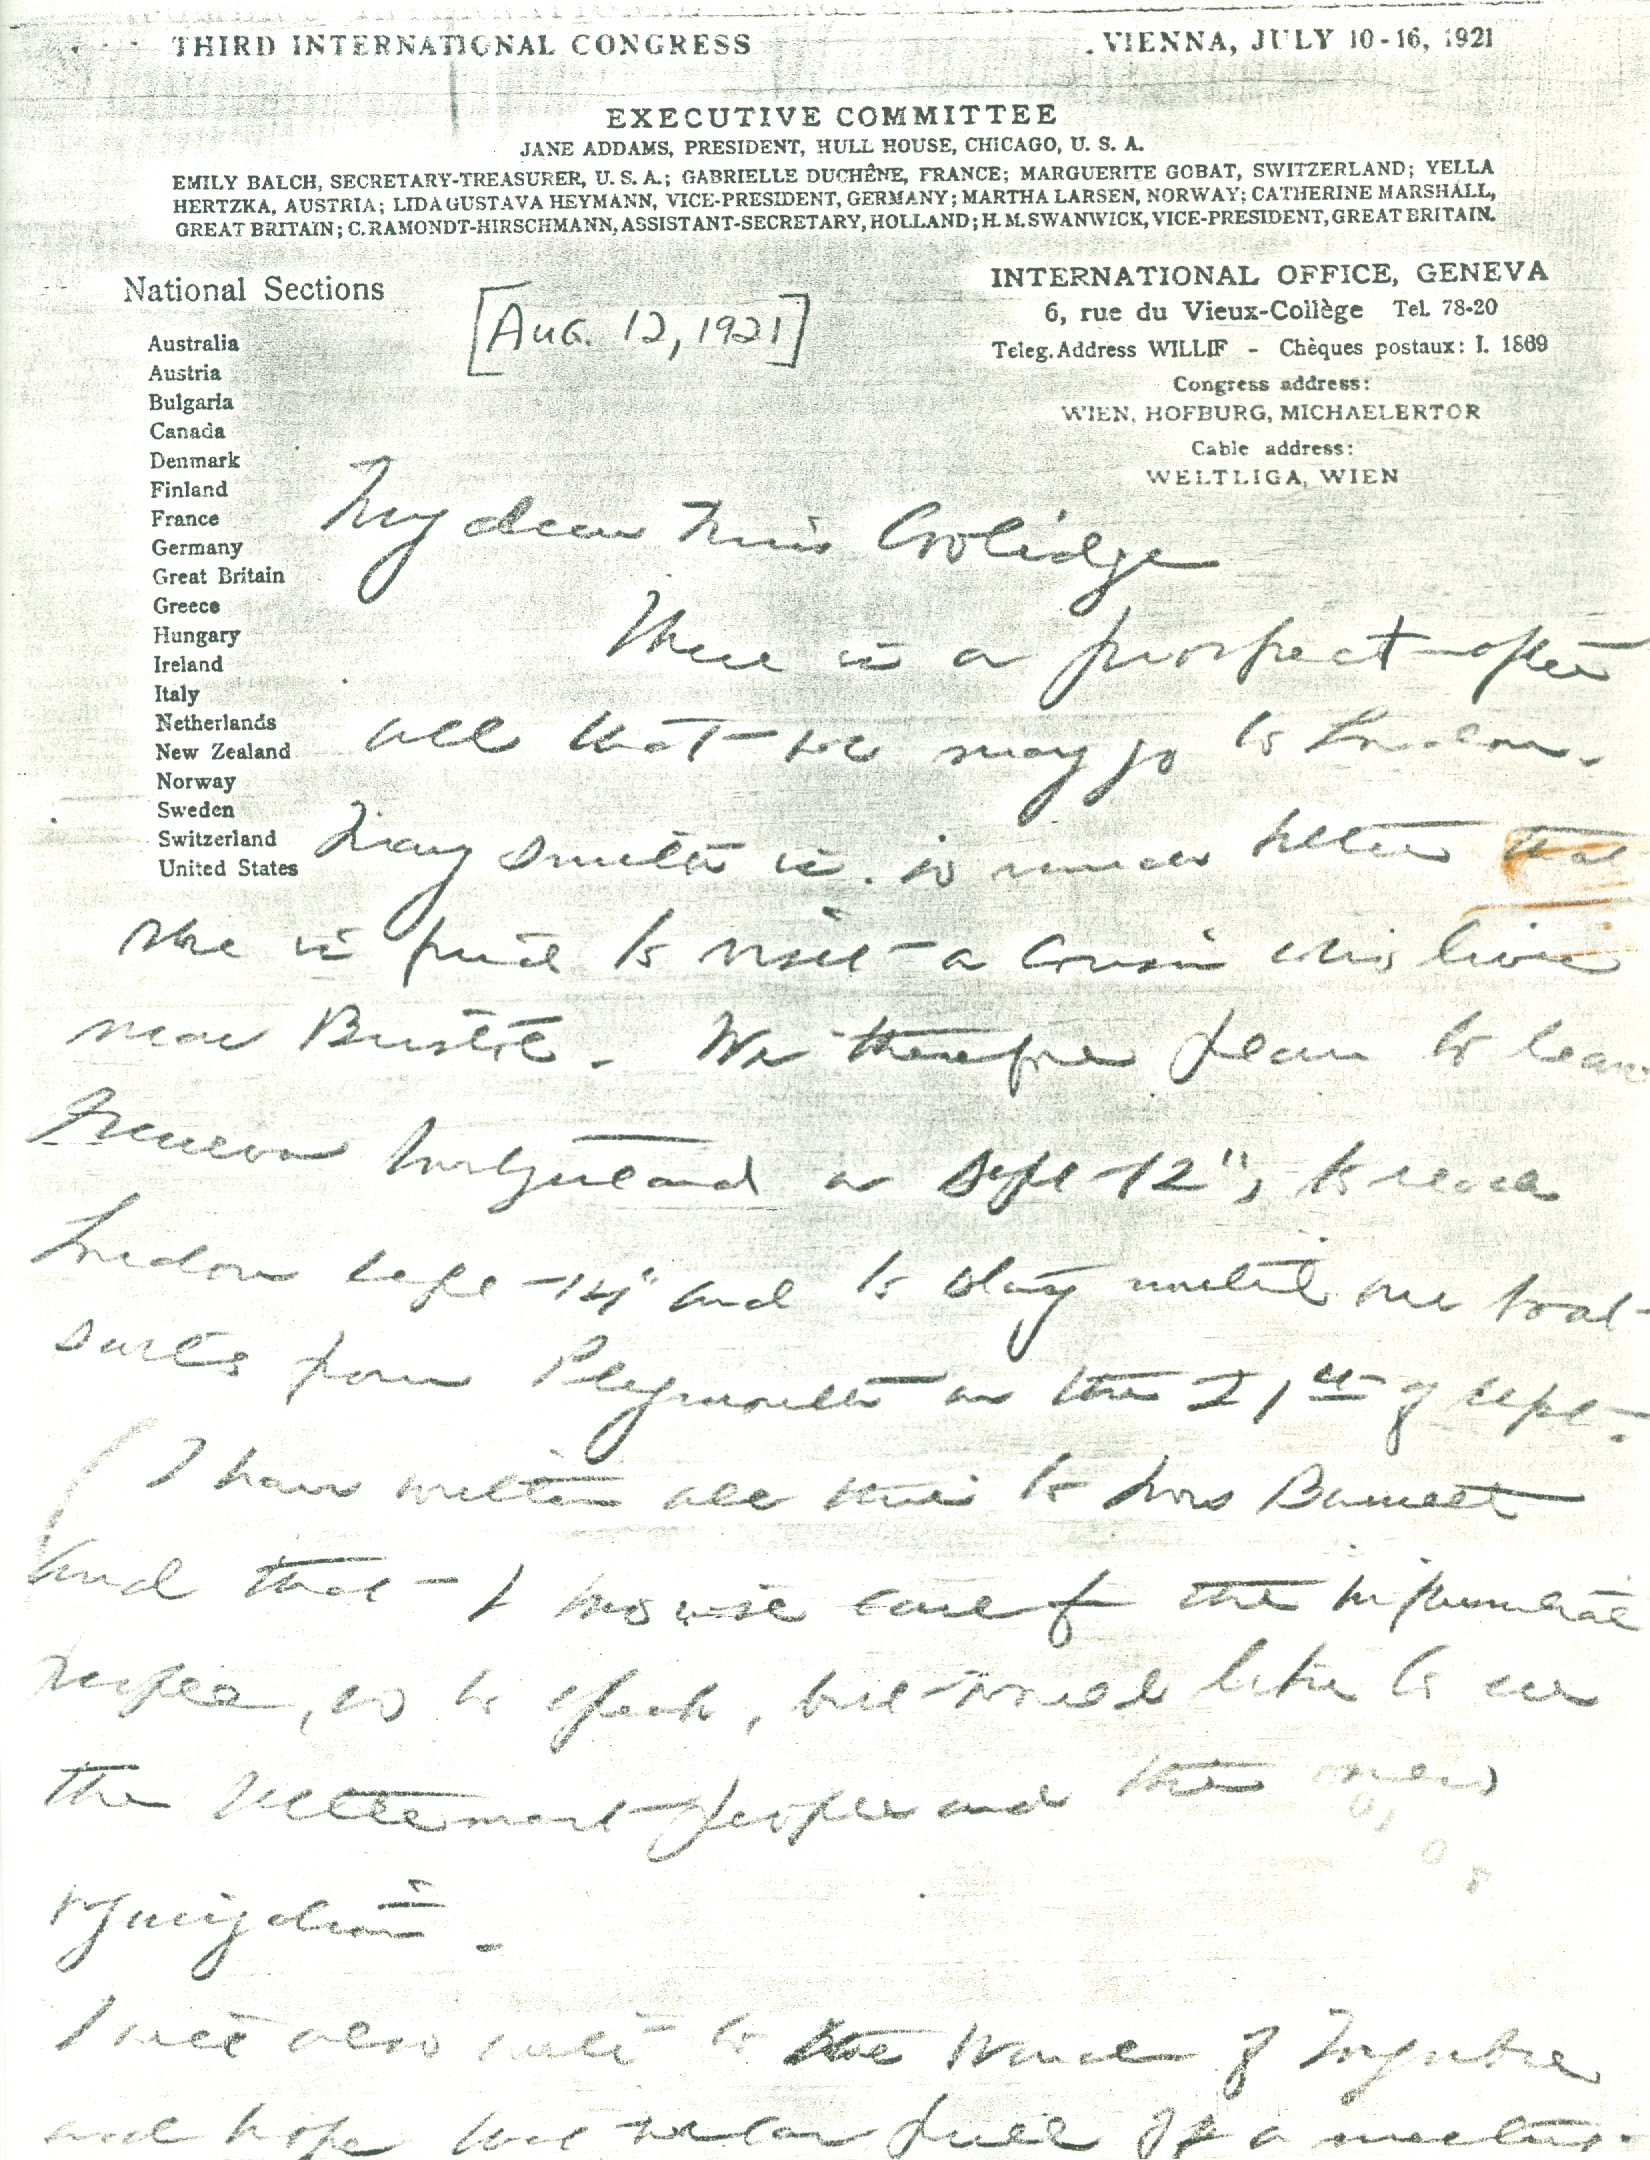 THIRD INTERNATIONAL CONGRESS
VIENNA, JULY 10-16, 1921
EXECUTIVE COMMITTEE
JANE ADDAMS, PRESIDENT, HULL HOUSE, CHICAGO, U. S. A.
EMILY BALCH, SECRETARY-TREASURER, U. S. A.; GABRIELLE DUCHÊNE, FRANCE; MARGUERITE GOBAT, SWITZERLAND; YELLA
HERTZKA, AUSTRIA; LIDA GUSTAVA HEYMANN, VICE-PRESIDENT, GERMANY; MARTHA LARSEN, NORWAY; CATHERINE MARSHALL,
GREAT BRITAIN; C. RAMONDT-HIRSCHMANN, ASSISTANT-SECRETARY, HOLLAND; H. M. SWANWICK, VICE-PRESIDENT, GREAT BRITAIN.
National Sections
Australia
Austria
Bulgaria
Canada
Denmark
Finland
France
Germany
Great Britain
Greece
Hungary
Ireland
Italy
Netherlands
New Zealand
Norway
Sweden
Switzerland
United States
[Aug. 12, 1921]
INTERNATIONAL OFFICE, GENEVA
6, rue du Vieux-Collège Tel. 78-20
Teleg. Address WILLIF - Chèques postaux: I. 1869
Congress address:
WIEN, HOFBURG, MICHAELERTOR
Cable address:
WELTLIGA, WIEN
My dear Miss Coolidge
There is a prospect after
all that we may go to London.
Mary Smith is so much better that
she is to visit a cousin who lives
near Bristol. We therefore plan to leave
Geneva Switzerland on Sept 12", to reach
London Sept 14" and to stay until our boat
sails from Plymouth on the 21st of Sept.
I have written all this to Mrs Barnett
and that I the
people, so to speak, but would like to see
the Settlement people and the
organization.
I will also write to the of
and hope for a meeting.